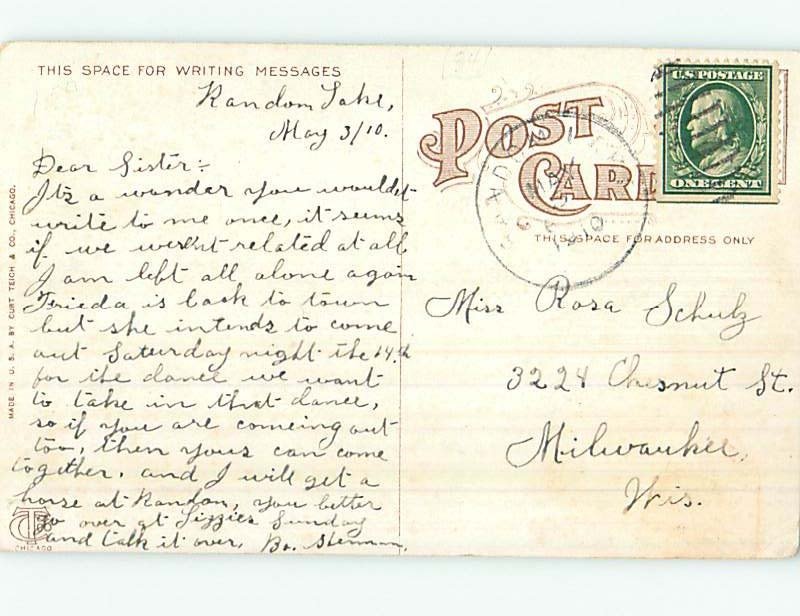 THIS SPACE FOR WRITING MESSAGES
Random Lake,
May 3/10.
Dear Sister:
Its a wonder you wouldn't
write to me once, it seems
if we wern't related at all
I am left all alone again
Frieda is back to town
but she intends to come
out Saturday night the 14th
for the dance we want
to take in that dance,
so if you are comeing out
too, then yous can come
together, and I will get a
horse at Randon, you better
go over at Lizzies Sunday
and talk it over. Bo.
MADE IN U. S. A. BY CURT TEICH & CO., CHICAGO.
CT
CHICAGO
POST
CARD
U.S. POSTAGE
ONE CENT
THIS SPACE FOR ADDRESS ONLY
Miss Rosa Schulz
3224 Chesnut St.
Milwaukee,
Wis.